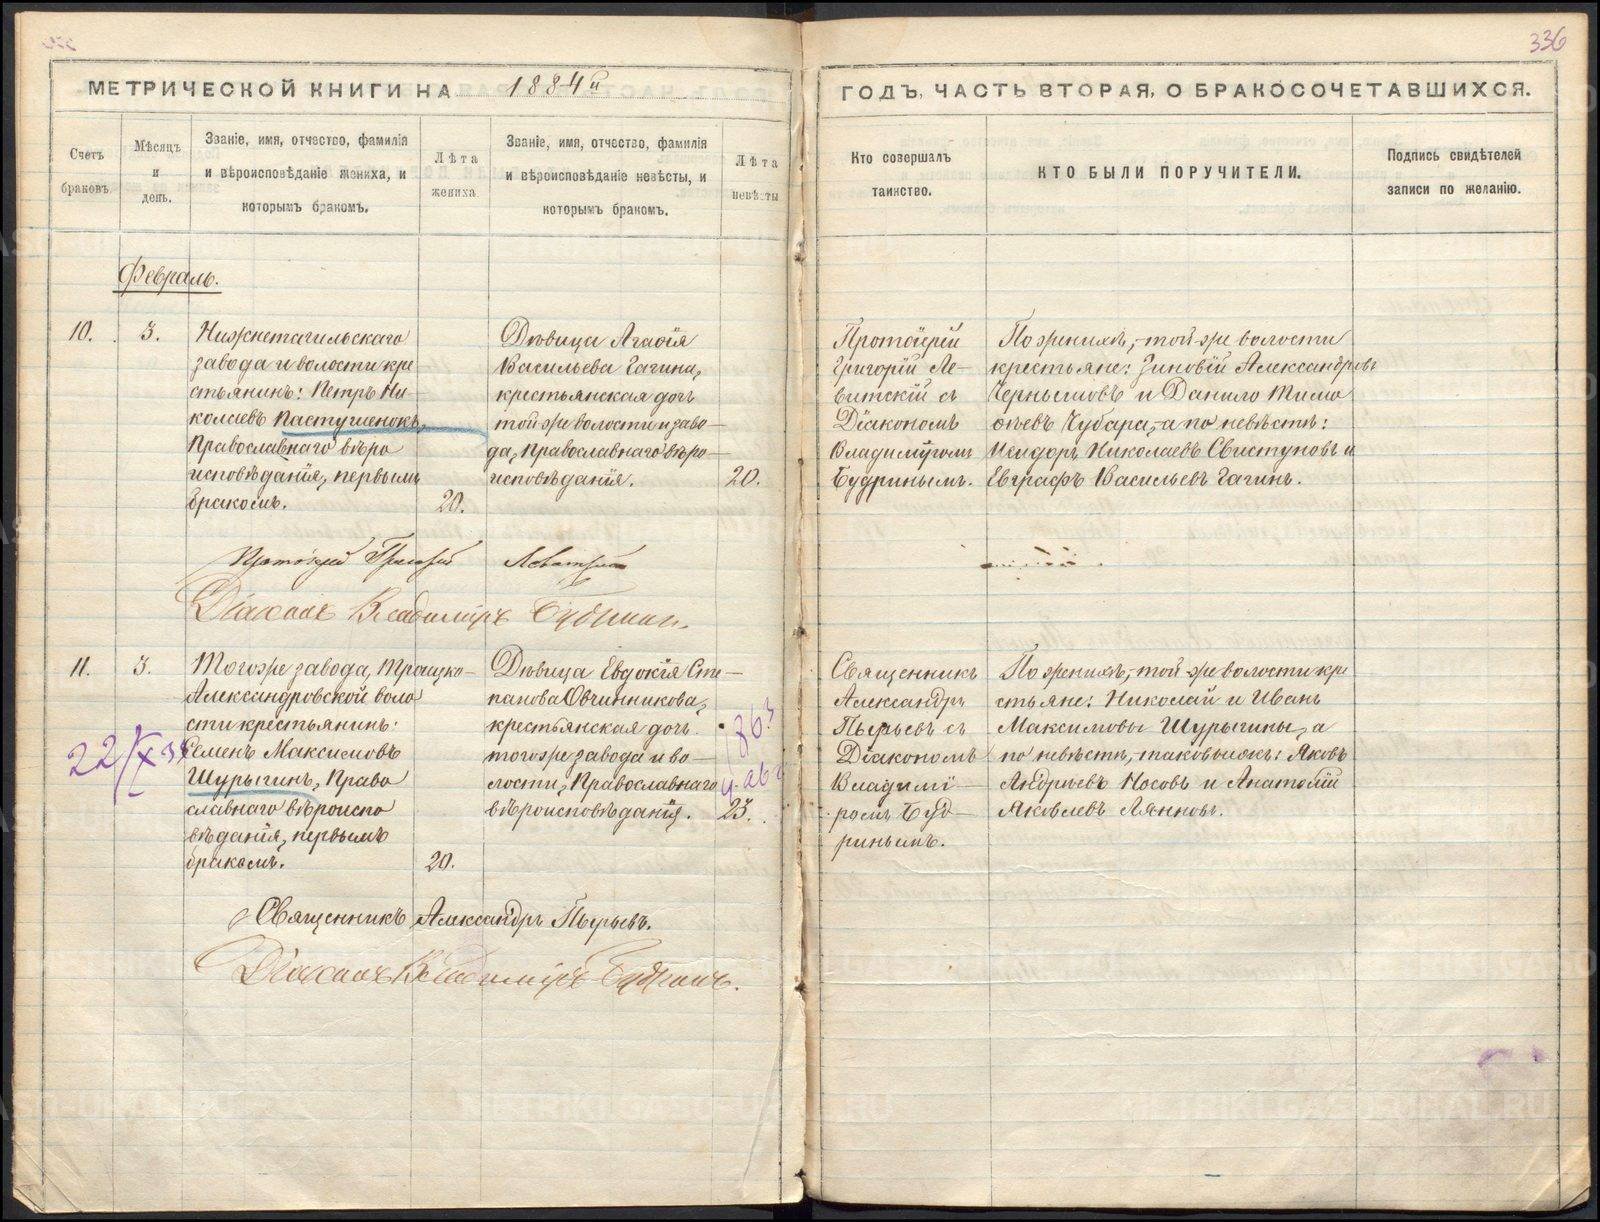 336
МЕТРИЧЕСКОЙ КНИГИ НА 1884й
ГОДЪ, ЧАСТЬ ВТОРАЯ, О БРАКОСОЧЕТАВШИХСЯ.
Счетъ
браковъ.
Мѣсяцъ
и
день.
Званіе, имя, отчество, фамилія
и вѣроисповѣданіе жениха, и
которымъ бракомъ.
Лѣта
жениха
Званіе, имя, отчество, фамилія
и вѣроисповѣданіе невѣсты, и
которымъ бракомъ.
Лѣта
невѣсты
Кто совершалъ
таинство.
КТО БЫЛИ ПОРУЧИТЕЛИ.
Подпись свидѣтелей
записи по желанію.
Февраль.
10.
3.
Нижнетагильскаго
завода и волости кре
стьянинъ: Петръ Ни-
колаевъ Пастушенокъ,
Православнаго вѣро
исповѣданія, первымъ
бракомъ.
20.
Дѣвица Агафія
Васильева Гагина,
крестьянская дочь
той же волости и заво-
да, Православнаго вѣро-
исповѣданія.
20.
Протоіерей
Григорій Ле-
витскій съ
Діакономъ
Владиміромъ
Будринымъ.
По женихѣ, той-же волости
крестьяне: Зиновій Александровъ
Чернышовъ и Данило Тимо
феевъ Чубара, а по невѣстѣ:
Исидоръ Николаевъ Свистуновъ и
Евграфъ Васильевъ Гагинъ.
Протоіерей Григорій Левитскій
Діаконъ Владиміръ Будринъ.
11.
3.
Тогоже завода, Троицко-
Александровской воло
сти крестьянинъ:
Семенъ Максимовъ
Шурыгинъ, Право
славнаго вѣроиспо
вѣданія, первымъ
бракомъ.
20.
Дѣвица Евдокія Сте-
панова Овчинникова,
крестьянская дочь
тогоже завода и во-
лости, Православнаго
вѣроисповѣданія.
23.
Священникъ
Александръ
Пырьевъ съ
Діакономъ
Владимі-
ромъ Буд-
ринымъ.
По женихѣ, той-же волости кре
стьяне: Николай и Иванъ
Максимовы Шурыгины, а
по невѣстѣ, таковыежъ: Яковъ
Андреевъ Носовъ и Анатолій
Яковлевъ Ляпновъ.
22/X 38
Священникъ Александръ Пырьевъ.
Діаконъ Владиміръ Будринъ.